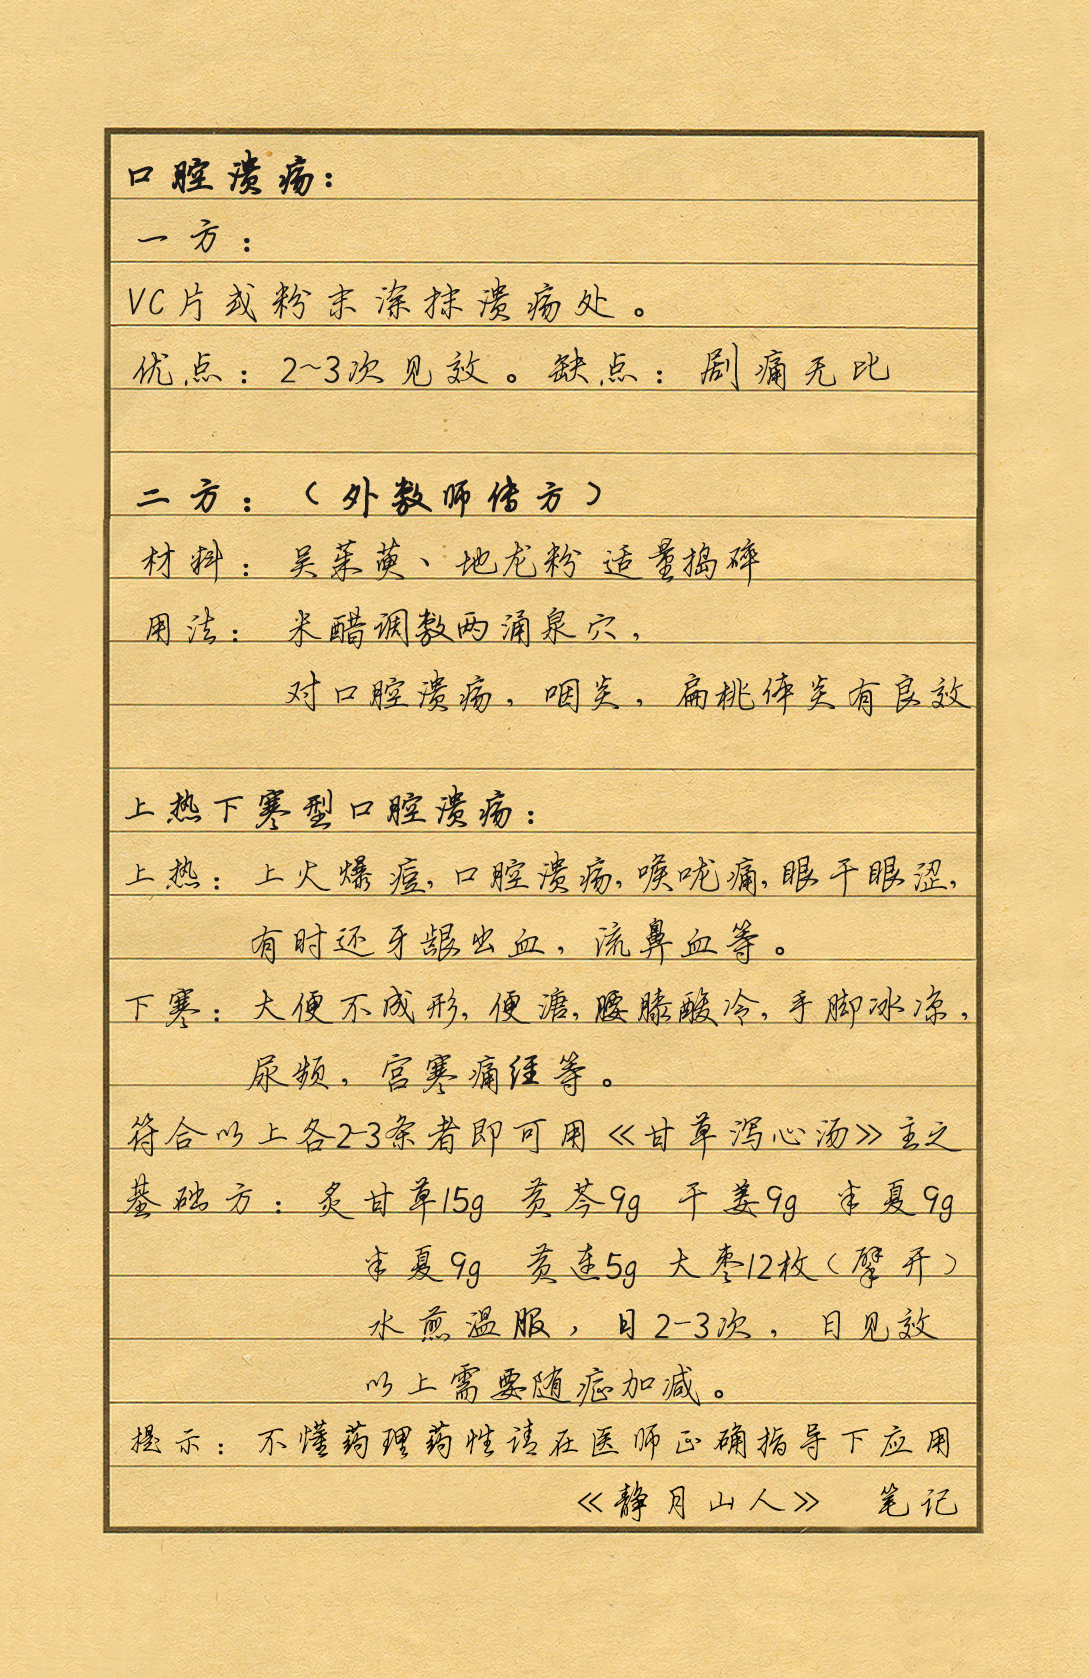 口腔溃疡：
一方：
VC片或粉末涂抹溃疡处。
优点：2~3次见效。缺点：剧痛无比
二方：（外敷师传方）
材料：吴茱萸、地龙粉 适量捣碎
用法：米醋调敷两涌泉穴，
对口腔溃疡，咽炎，扁桃体炎有良效
上热下寒型口腔溃疡：
上热：上火爆痘，口腔溃疡，喉咙痛，眼干眼涩，
有时还牙龈出血，流鼻血等。
下寒：大便不成形，便溏，腰膝酸冷，手脚冰凉，
尿频，宫寒痛经等。
符合以上各2-3条者即可用《甘草泻心汤》主之
基础方：炙甘草15g 黄芩9g 干姜9g 半夏9g
半夏9g 黄连5g 大枣12枚（擘开）
水煎温服，日2-3次，日见效
以上需要随症加减。
提示：不懂药理药性请在医师正确指导下应用
《静月山人》 笔记